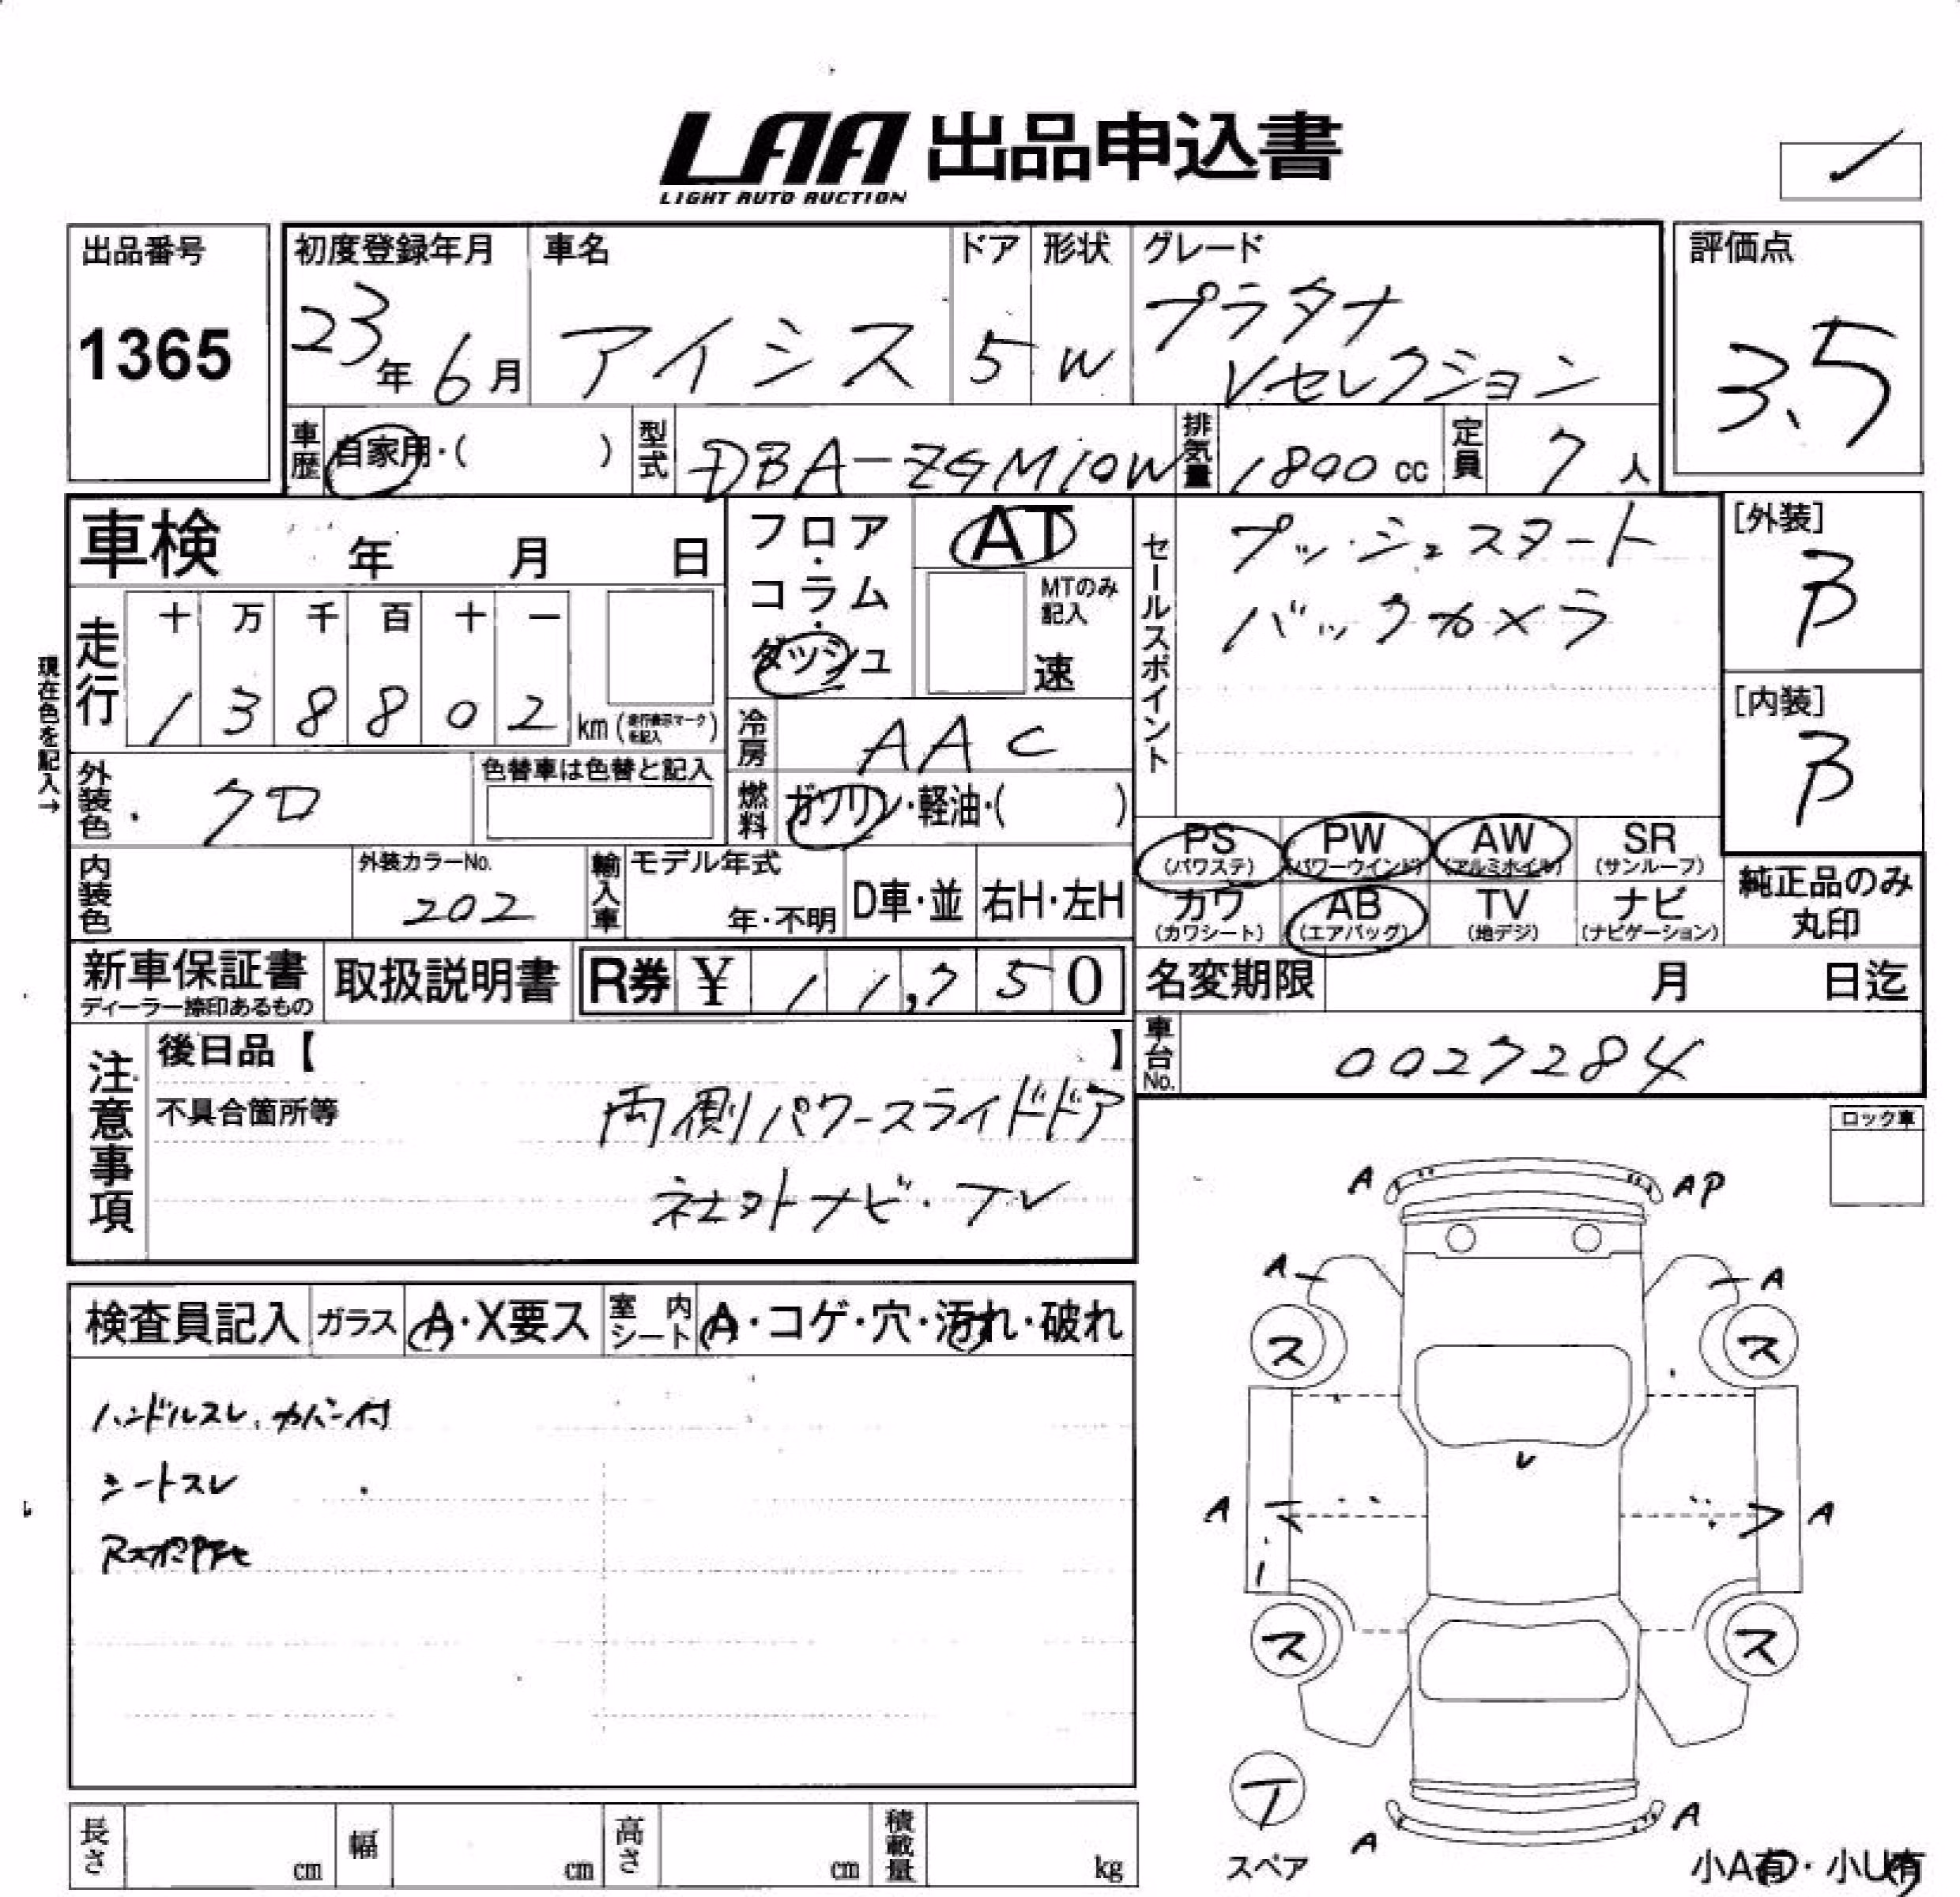 LAA 出品申込書
LIGHT AUTO AUCTION
出品番号
1365
初度登録年月
23年6月
車名
アイシス
ドア
5
形状
W
グレード
プラタナ
Vセレクション
評価点
3.5
車歴 自家用・( )
型式 DBA-ZGM10W
排気量 1800cc
定員 7人
車検 年 月 日
フロア・コラム・ダッシュ
AT
MTのみ記入
速
セールスポイント
プッシュスタート
バックカメラ
[外装]
B
[内装]
B
現在色を記入→
走行
十 万 千 百 十 一
1 3 8 8 0 2 km (走行表示マークを記入)
冷房 AAC
外装色 クロ
色替車は色替と記入
燃料 ガソリン・軽油・( )
PS (パワステ)
PW (パワーウインド)
AW (アルミホイル)
SR (サンルーフ)
カワ (カワシート)
AB (エアバッグ)
TV (地デジ)
ナビ (ナビゲーション)
純正品のみ丸印
内装色
外装カラーNo.
202
輸入車
モデル年式
年・不明
D車・並
右H・左H
新車保証書
ディーラー捺印あるもの
取扱説明書
R券 ¥ 11,750
名変期限 月 日迄
車台No. 0027284
注意事項
後日品【 】
不具合箇所等
両側パワースライドドア
社外ナビ・TV
ロック車
検査員記入
ガラス A・X要ス
室内シート A・コゲ・穴・汚れ・破れ
ハンドルスレ、カバー付
シートスレ
A AP
A A
ス ス
V
A A
ス ス
T
スペア
A A
小A有・小U有
長さ cm
幅 cm
高さ cm
積載量 kg